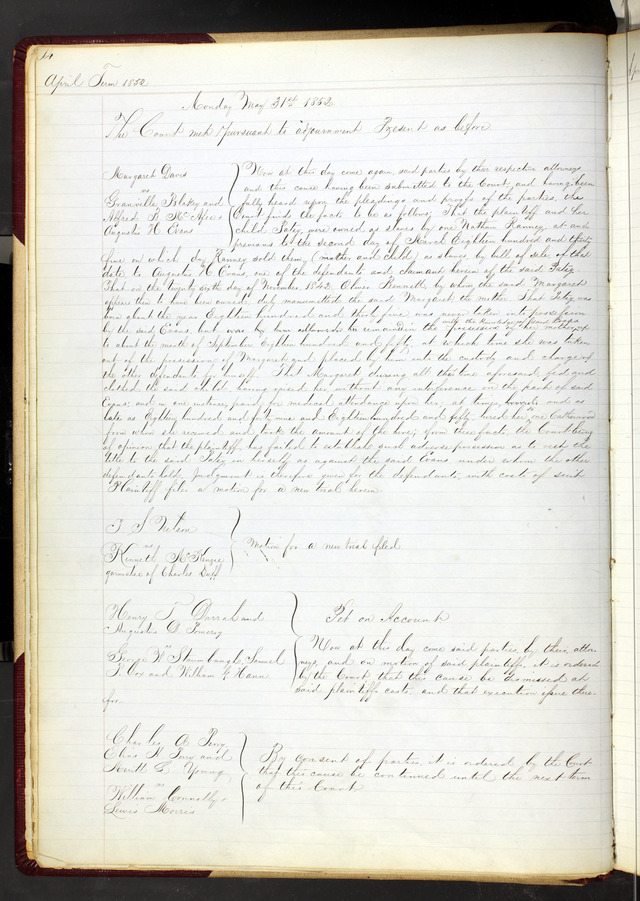 April Term 1852
Monday May 31st 1852
The Court met pursuant to adjournment Present as before
Margaret Davis
vs
Granville Blakey and
Alfred B. McAfee
Augustus H. Evans
Now at this day come again said parties by their respective attorneys
and this cause having been submitted to the Court, and having been
fully heard upon the pleadings and proofs of the parties, the
Court finds the facts to be as follows; That the plaintiff and her
child Patsy, were owned as slaves by one Nathan Ranney, at and
previous to the second day of March Eighteen hundred and thirty
five on which day Ranney sold them (mother and child) as slaves by bill of sale of that
date to Augustus H. Evans, one of the defendants and claimant herein of the said Patsy.
That on the twenty sixth day of November 1842. Oliver Bennett, by whom the said Margaret
appears then to have been owned, duly manumitted the said Margaret the mother. That Patsy was
born about the year Eighteen hundred and thirty four was never taken into possession
by the said Evans, but was by him allowed to remain in the possession of her mother, up
with the knowledge of
to about the month of September Eighteen hundred and fifty, at which time she was taken
out of the possession of Margaret and placed by him into the custody and charge of
the other defendants for safe That Margaret during all that time aforesaid, fed and
clothed the said child, having raised her without any interference on the part of said
Evans; and in one instance, paid for medical attendance upon her, at times, and as
late as Eighteen hundred and forty nine and Eighteen hundred and fifty hired her to one
from whom she received and took the amount of the hire; from these facts, the Court being
of opinion that the plaintiff has failed to establish such adverse possession as to vest the
title to the said Patsy in herself as against the said Evans under whom the other
defendants hold, Judgment is therefore given for the defendants, with costs of suit
Plaintiff files a motion for a new trial herein.
T S Nelson
vs
Kenneth McKenzie
garnishee of Charles
Motion for a new trial filed
Henry T. Darrah and
Augustus D. Pomeroy
vs
George W. Stumbaugh, Samuel
P. Cox and William G. Hann
Pet on Account
Now at this day come said parties, by their attor-
neys, and on motion of said plaintiffs, it is ordered
by the Court that this cause be dismissed at
said plaintiffs costs, and that execution issue there-
for.
Charles A. Perry
Elias H. Perry and
Young
vs
William Connolly &
Lewis Morris
By consent of parties it is ordered by the Court
that this cause be continued until the next term
of this Court